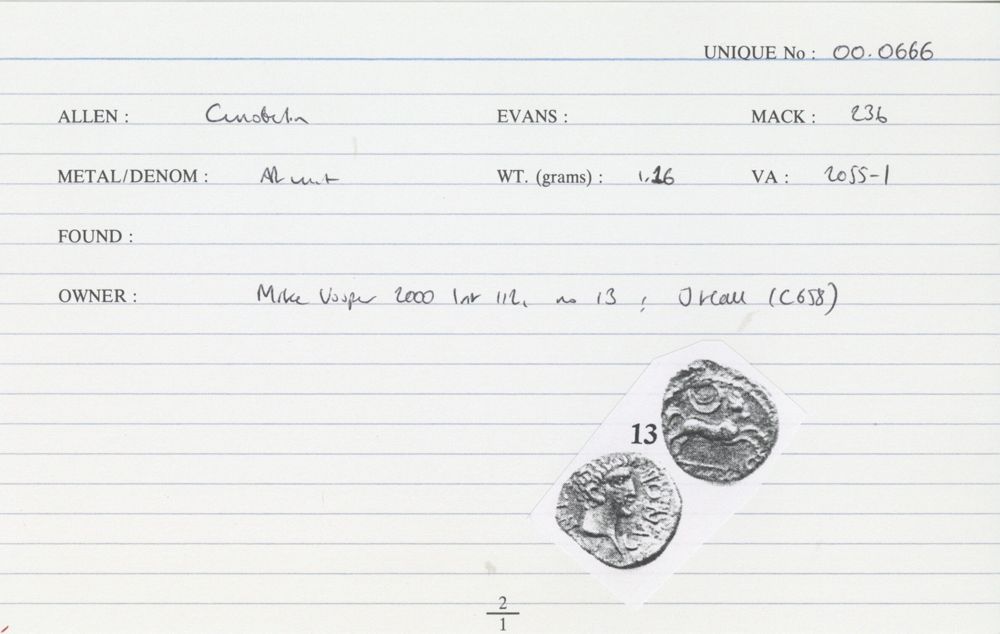 UNIQUE No : 00.0666
ALLEN : Cunobelin EVANS : MACK : 236
METAL/DENOM : AR unit WT. (grams) : 1.16 VA : 2055-1
FOUND :
OWNER : Mike Vosper 2000 list 112, no 13 ; (C658)
13
2
1